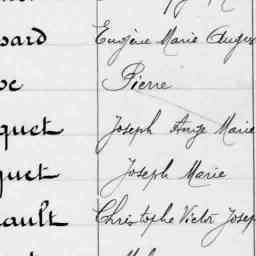 sard Eugène Marie Augus
oc Pierre
quet Joseph Ange Marie
quet Joseph Marie
ault Christophe Victor Josep